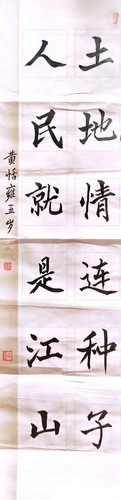 土地情连种子
人民就是江山
黄恬雍五岁